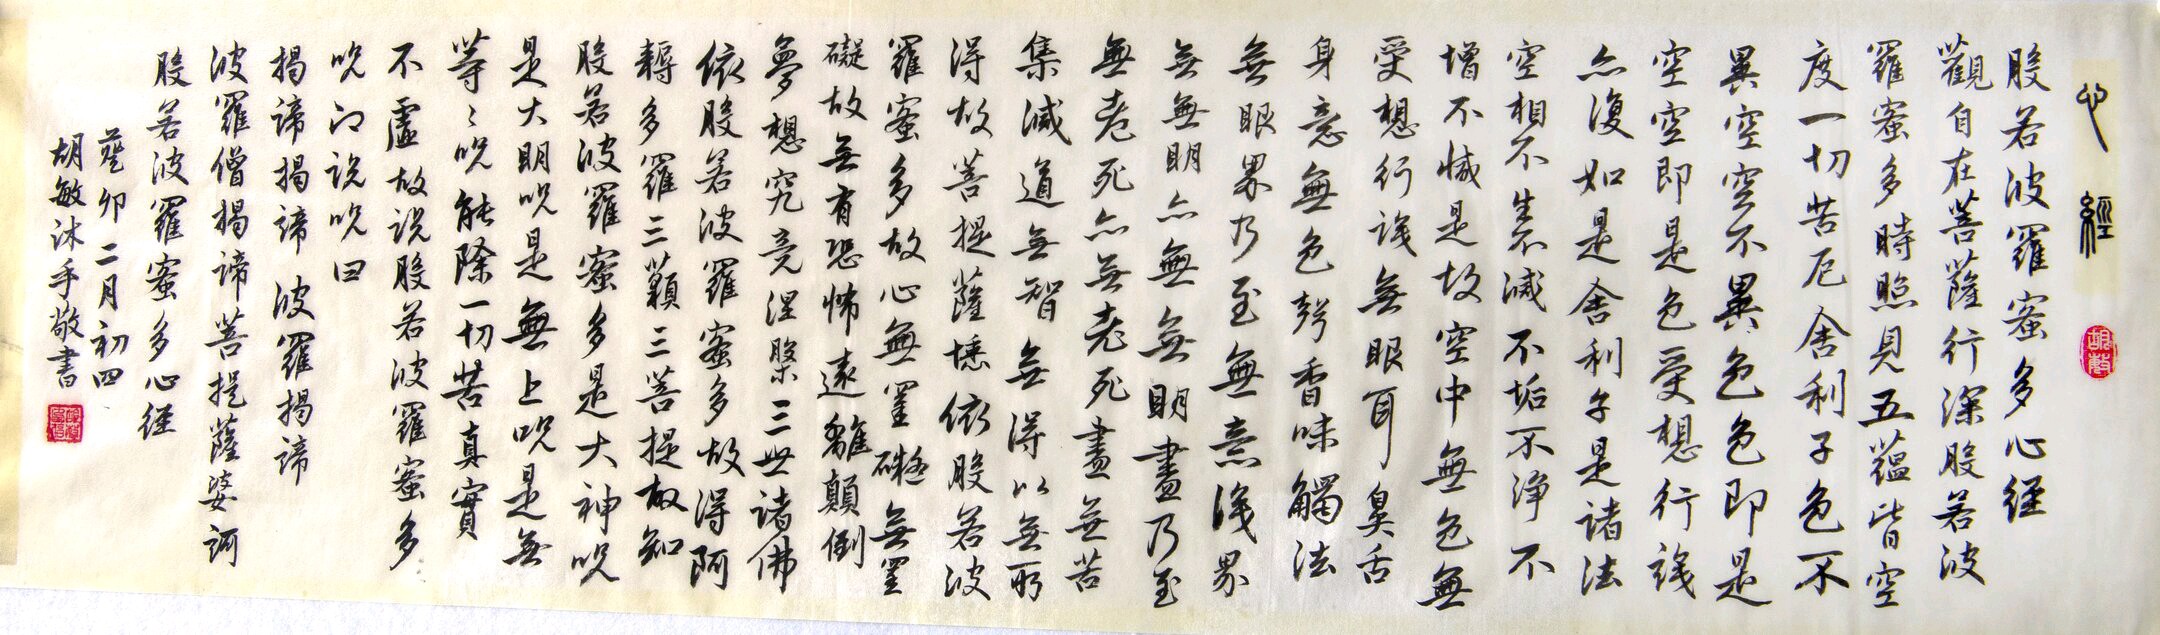 心經
般若波羅蜜多心経
觀自在菩薩行深般若波
羅蜜多時照見五蘊皆空
度一切苦厄舍利子色不
異空空不異色色即是
空空即是色受想行識
亦復如是舍利子是諸法
空相不生不滅不垢不淨不
增不減是故空中無色無
受想行識無眼耳鼻舌
身意無色聲香味觸法
無眼界乃至無意識界
無無明亦無無明盡乃至
無老死亦無老死盡無苦
集滅道無智無得以無所
得故菩提薩埵依般若波
羅蜜多故心無罣礙無罣
礙故無有恐怖遠離顛倒
夢想究竟涅槃三世諸佛
依般若波羅蜜多故得阿
耨多羅三藐三菩提故知
般若波羅蜜多是大神咒
是大明咒是無上咒是無
等〻咒能除一切苦真實
不虛故說般若波羅蜜多
咒即說咒曰
揭諦揭諦 波羅揭諦
波羅僧揭諦 菩提薩婆訶
般若波羅蜜多心経
癸卯二月初四
胡敏沐手敬書